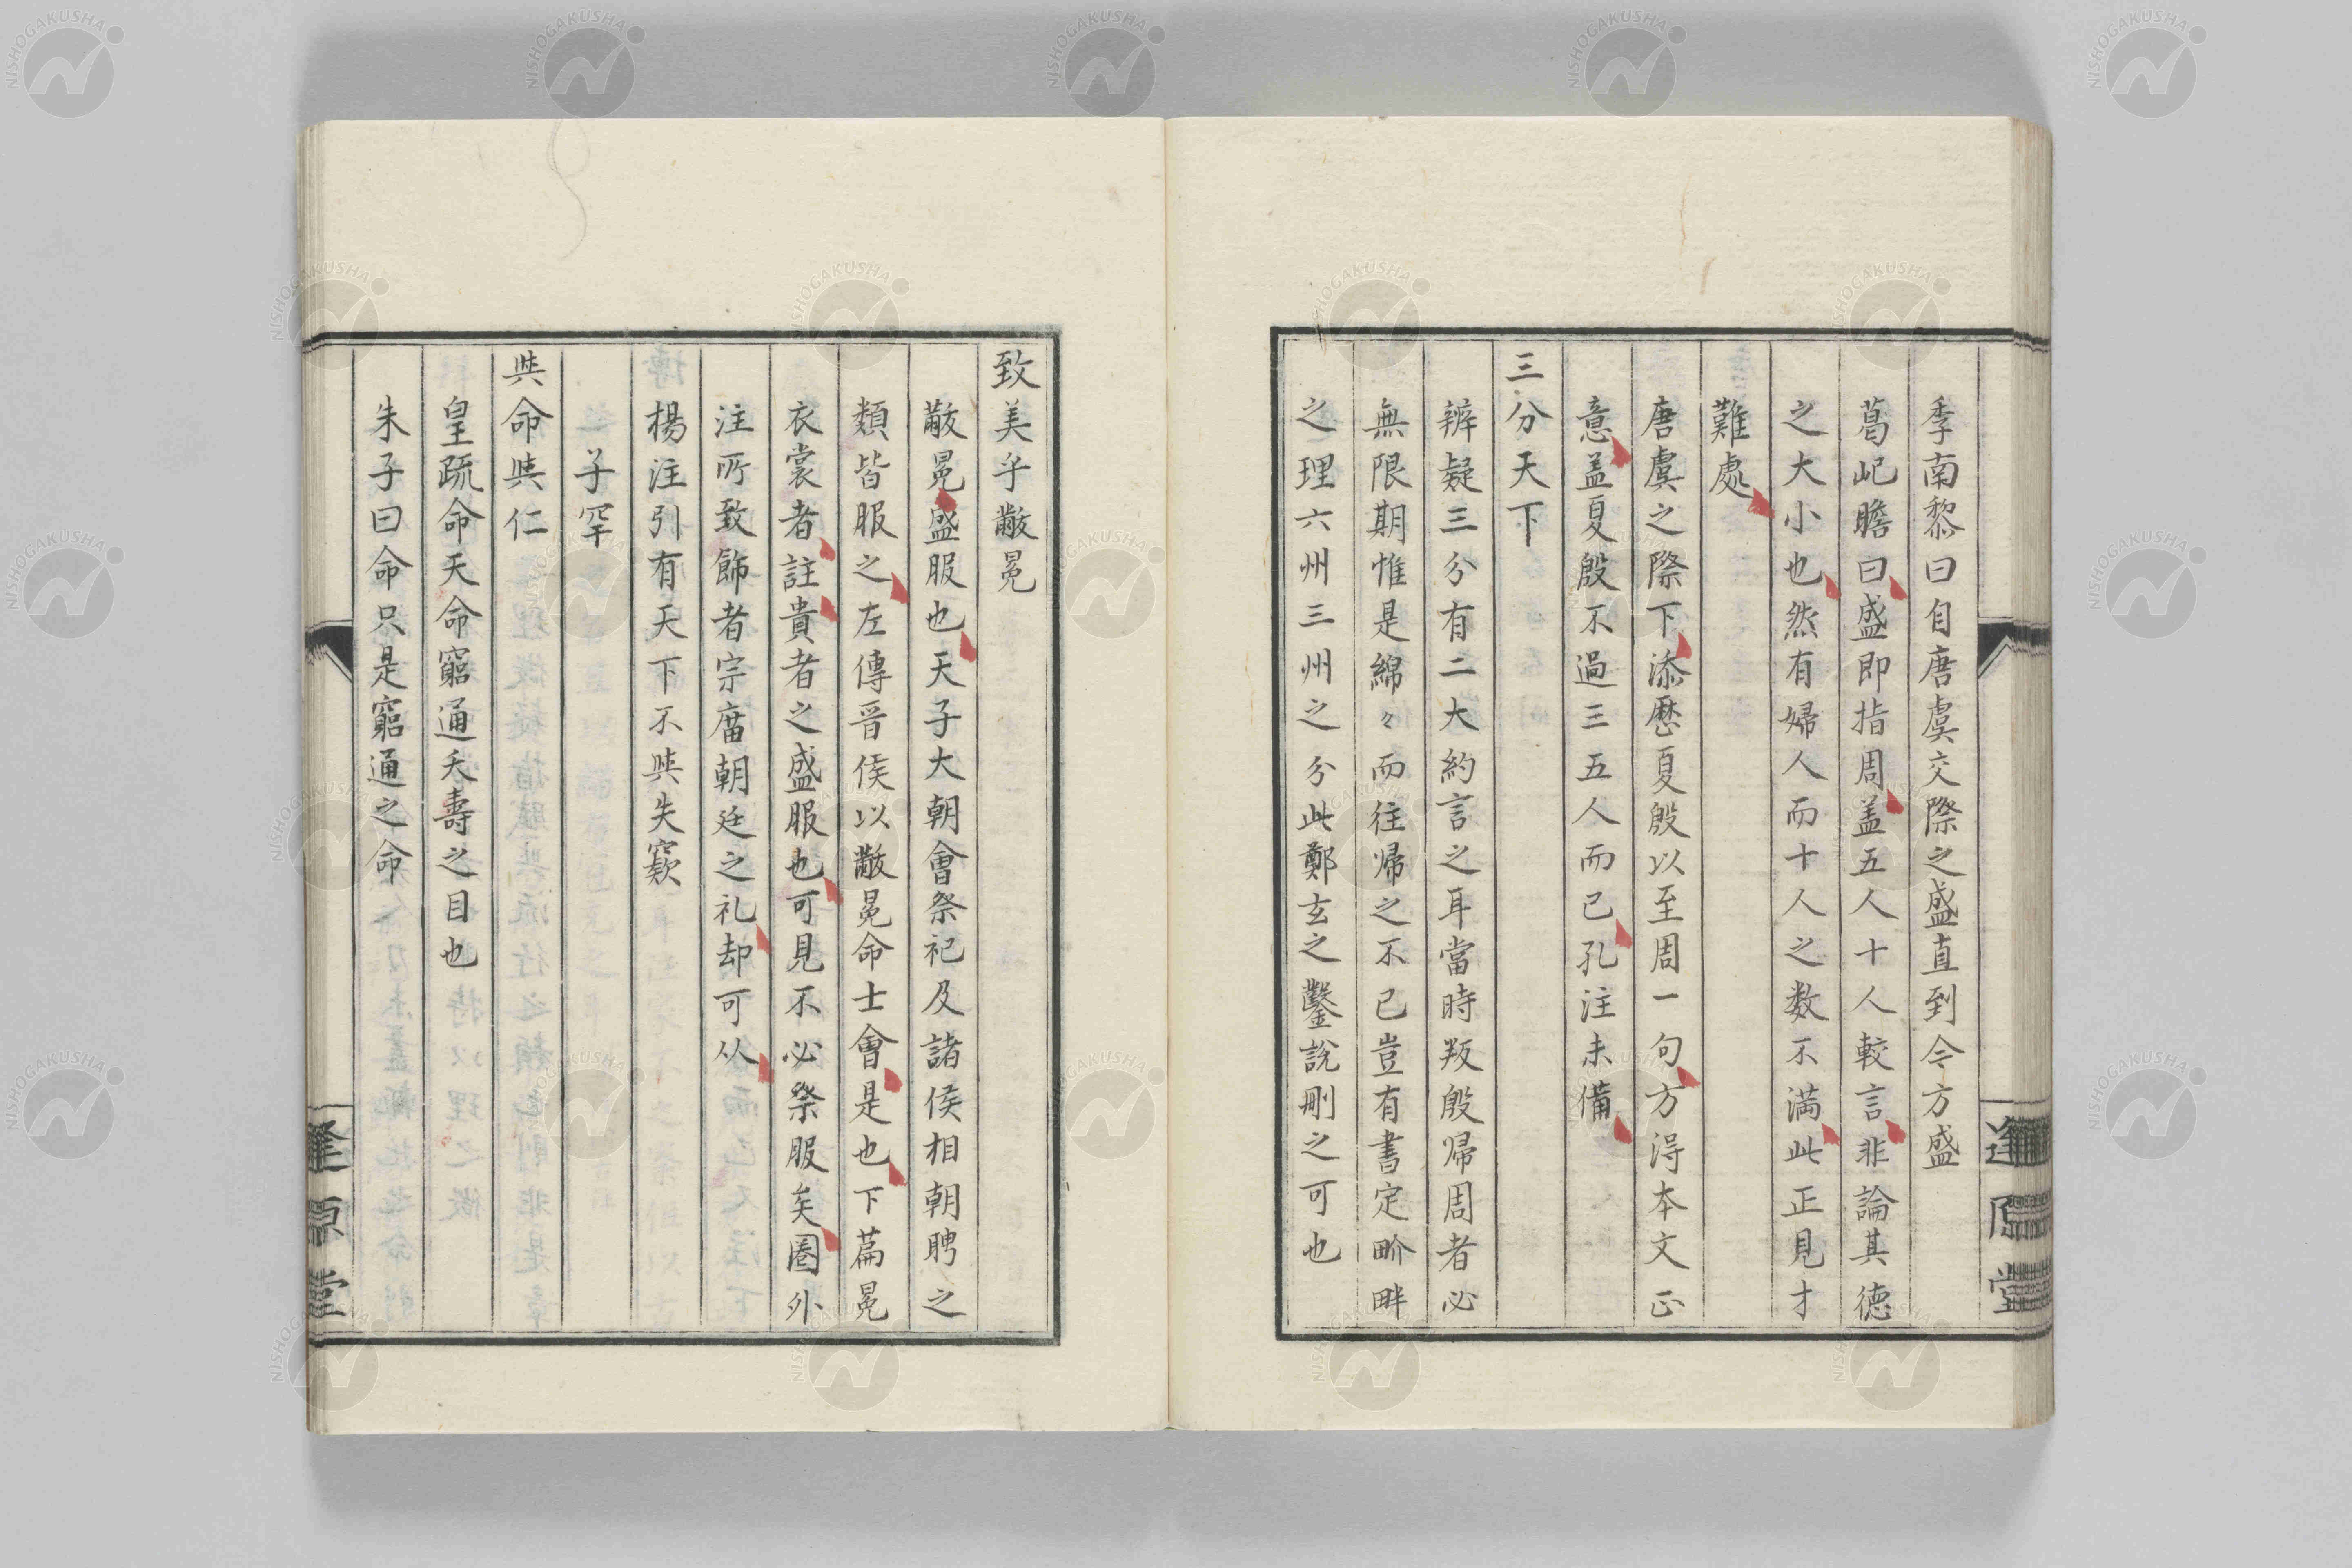 季南黎曰自唐虞交際之盛直到今方盛
葛屺瞻曰盛即指周盖五人十人較言非論其德
之大小也然有婦人而十人之数不満此正見才
難處
唐虞之際下添歷夏殷以至周一句方得本文正
意盖夏殷不過三五人而已孔注未備
三分天下
辨疑三分有二大約言之耳當時叛殷帰周者必
無限期惟是綿々而往帰之不已豈有書定畍畔
之理六州三州之分此鄭玄之鑿說刪之可也
逢原堂
致美乎黻冕
黻冕盛服也天子大朝會祭祀及諸侯相朝聘之
類皆服之左傳晋侯以黻冕命士會是也下篇冕
衣裳者註貴者之盛服也可見不必祭服矣圏外
注所致飾者宗庿朝廷之礼却可从
楊注引有天下不與失窾
子罕
與命與仁
皇疏命天命窮通夭壽之目也
朱子曰命只是窮通之命
逢原堂
NISHOGAKUSHA